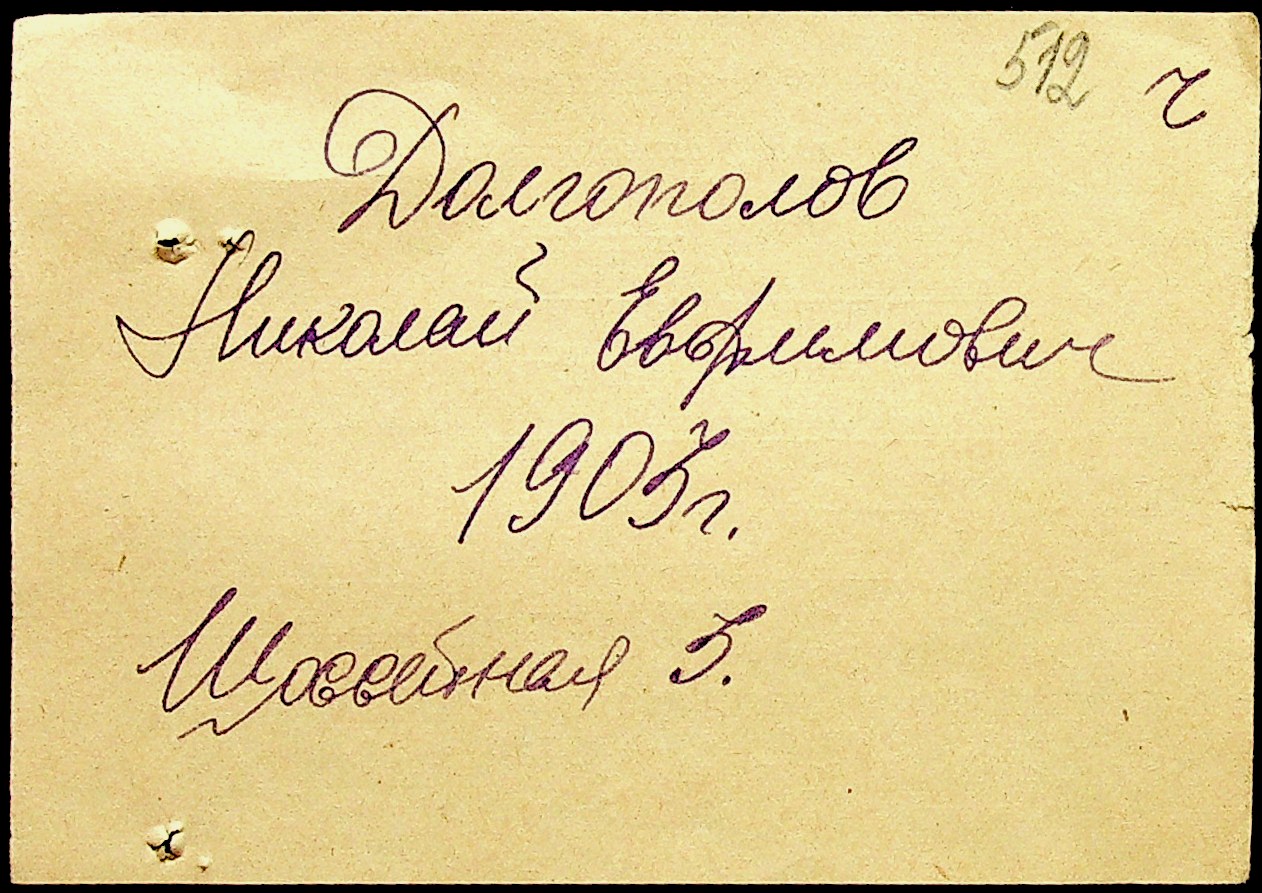 512 ч
Долгополов
Николай Евфимович
1903г.
Шоссейная 3.